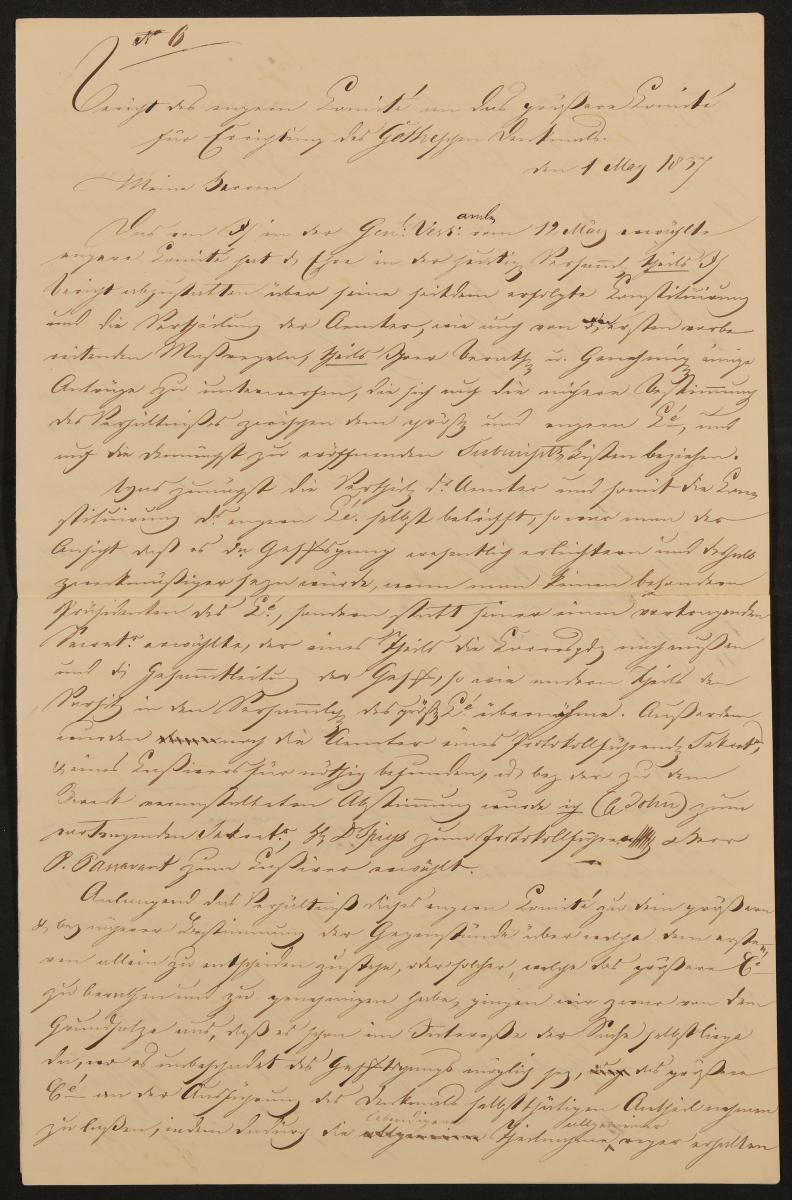 No 6
Bericht des engern Comité an das größere Comité
für Errichtung des Götheschen Denkmals.
den 1 May 1837
Meine Herren
Das von Ih in der Genl: Vers: amlg vom 12 März erwählte
engere Comité hat d. Ehre in der heutig Versamml theils Ih
Bericht abzustatten über seine seitdem erfolgte Constituirung
und die Vertheilung der Aemter, wie auch von den ersten vorbe
reitenden Maßregeln, theils Ihrer Berathg u. Genehmig einige
Anträge zu unterwerfen, die sich auf die nähere Bestimmung
des Verhältnißes zwischen dem größ und engern Cé, und
auf die demnächst zu eröffnenden Subscriptslisten beziehen.
Was zunächst die Vertheilg dr Aemter und somit die Con
stituirung ds engern Cé. selbst betrifft, so war man der
Ansicht daß es den Geschftsgang wesentlich erleichtern und deshalb
zweckmäßiger seyn würde, wenn man keinen besondern
Präsidenten des Cé, sondern statt seiner einen vortragenden
Secrets. erwählte, der eines Theils die Correspdz nach außen
und die Gesammtleitung der Geschfte, so wie andern Theils den
Vorsitz in den Versammlg des größ Cé übernähme. Außerdem
wurden noch die Aemter eines Protokollführend Sekrets,
& eines Cassirers für nöthig befunden, u bey der zu dem
Zweck veranstalteten Abstimmung wurde ich (C John) zum
vortragenden Sekrets, H Dr Spieß zum Protokollführer & Herr
P. Passavant zum Cassirer erwählt.
Anlangend das Verhältniß dieses engern Comité zu dem größern
& bey näherer Bestimmung der Gegenstände über welche dem erste
ren allein zu entscheiden zustehe, oder solcher, welche das größere Cé
zu berathen und zu genehmigen habe, gingen wir zwar von dem
Grundsatze aus, daß es schon im Interesse der Sache selbst liege
da, wo es unbeschadet des Geschftsgangs möglich sey, das größere
Cé an der Ausführung des Denkmals selbstthätigen Antheil nehmen
zu laßen, indem dadurch die lebendigere Theilnahme allgemeiner reger erhalten